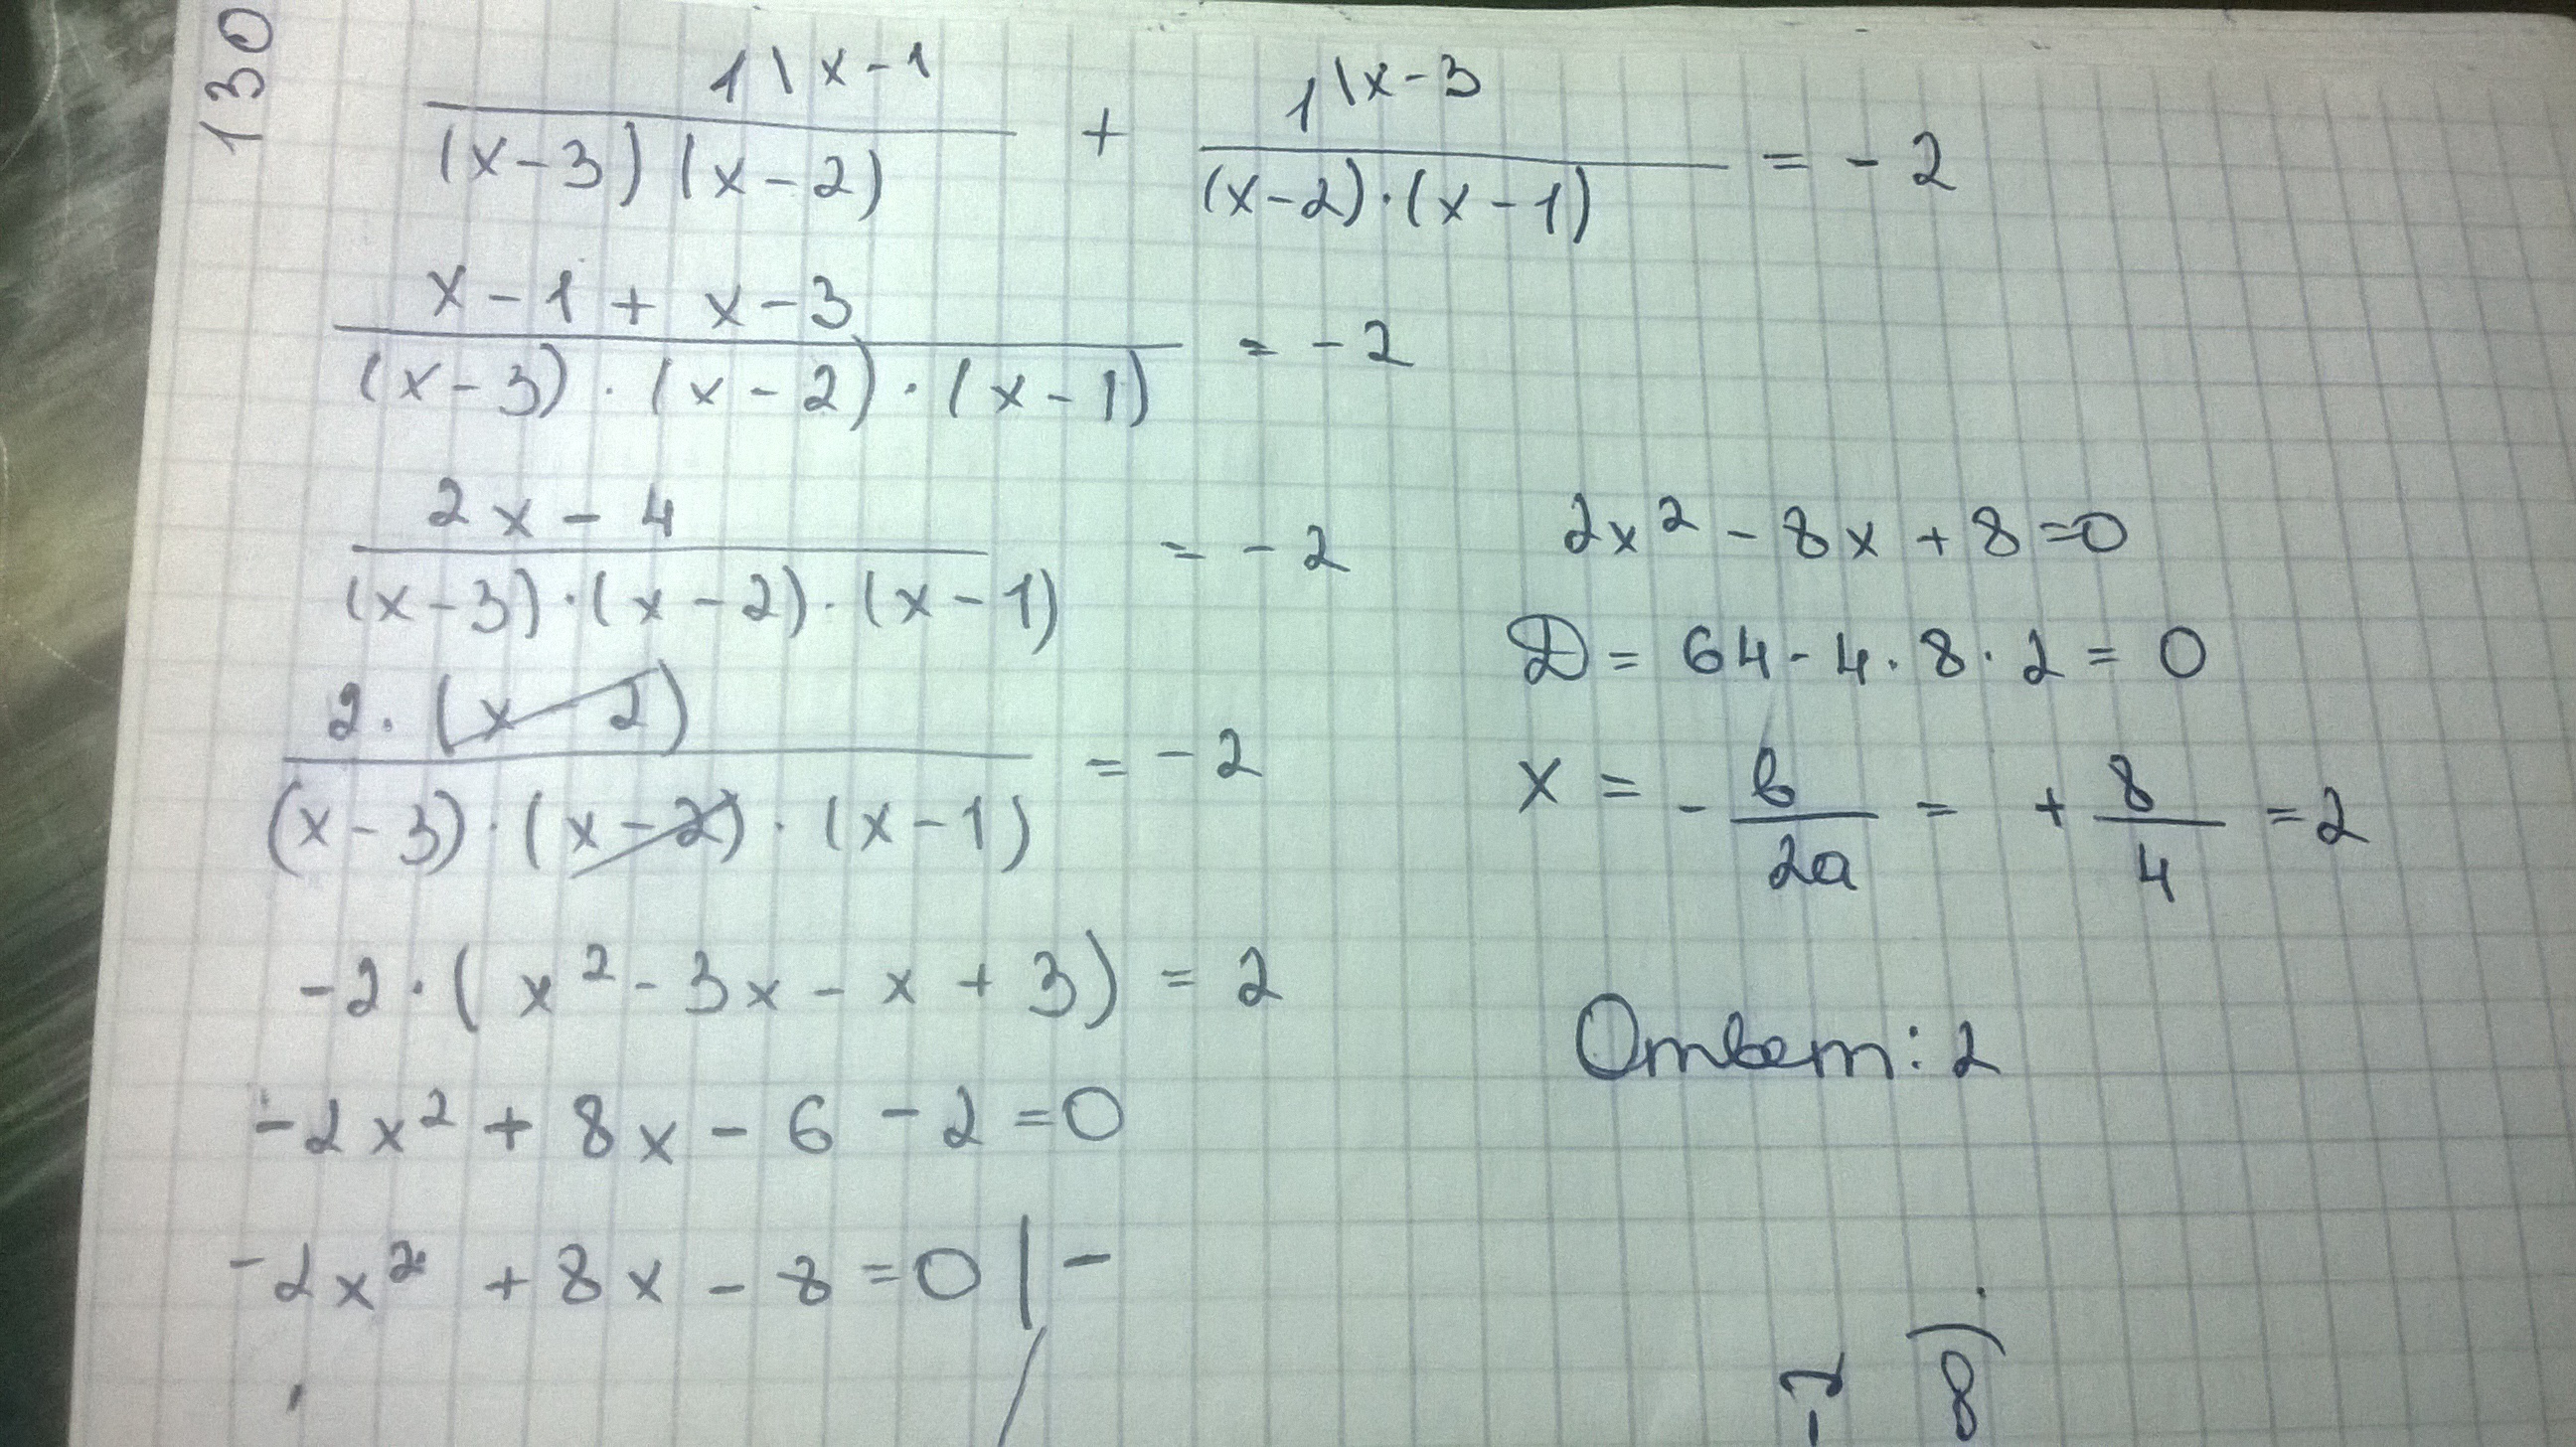 130
1\x-1/((x-3)(x-2)) + 1\x-3/((x-2)·(x-1)) = -2
(x-1+x-3)/((x-3)·(x-2)·(x-1)) = -2
(2x-4)/((x-3)·(x-2)·(x-1)) = -2
2·(x-2)/((x-3)·(x-2)·(x-1)) = -2
-2·(x²-3x-x+3) = 2
-2x²+8x-6-2=0
-2x²+8x-8=0|-
2x²-8x+8=0
D=64-4·8·2=0
x = -b/2a = +8/4 = 2
Ответ: 2
8